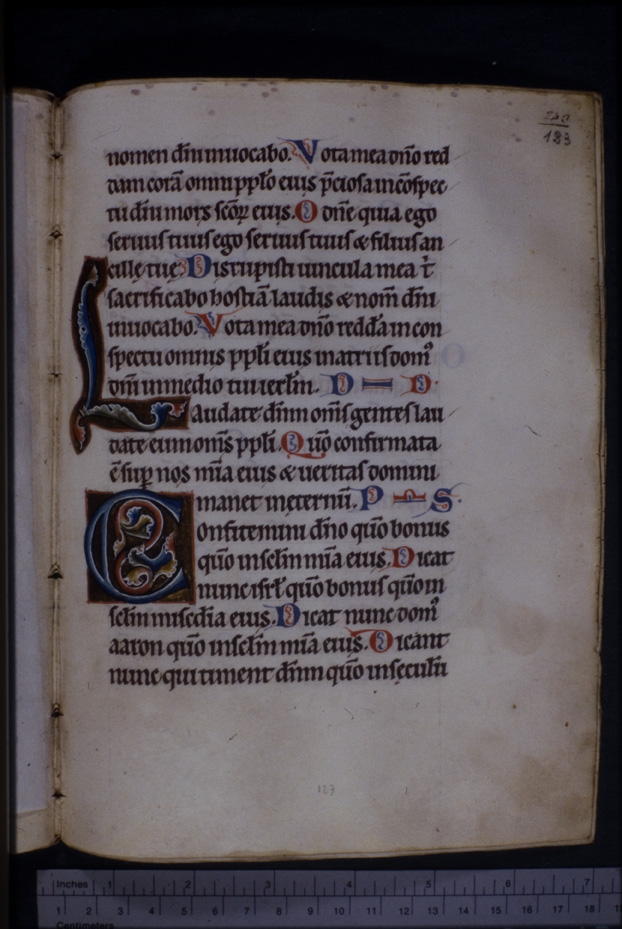 123
nomen dn̄i inuocabo. Vota mea dn̄o red
dam corā omni pplō eius p̄ciosa in cōspec
tu dn̄i mors scōꝝ eius. O dn̄e quia ego
seruus tuus ego seruus tuus & filius an
cille tue. Disrupisti uincula mea t̄
sacrificabo hostiā laudis & nom̄ dn̄i
inuocabo. Vota mea dn̄o reddā in con
spectu omnis ppli eius in atriis domꝰ
dn̄i in medio tui ierlm̄.
Laudate dn̄m om̄s gentes lau
date eum om̄s ppli. Quō confirmata
ē sup nos mīa eius & ueritas domini
manet in ęternū.
Confitemini dn̄o quō bonus
quō in sclm̄ mīa eius. Dicat
nunc isrł quō bonus quō in
sclm̄ misc̄dia eius. Dicat nunc domꝰ
aaron quō in sclm̄ mīa eius. Dicant
nunc qui timent dn̄m quō in seculū
127
Inches 1 2 3 4 5 6 7
1 2 3 4 5 6 7 8 9 10 11 12 13 14 15 16 17 18
Centimeters